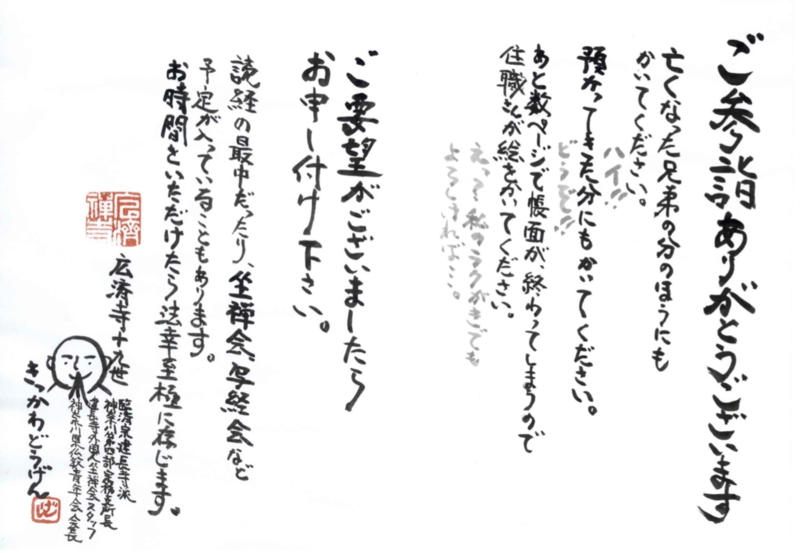 ご参詣ありがとうございます
亡くなった兄弟の分のほうにも
かいてください。
ハイ!!
預かってきた分にもかいてください。
どうぞ!!
あと数ページで帳面が、終わってしまうので
住職さんが絵をかいてください。
えっ? 私のラクがきでも
よろしければ…。
ご要望がございましたら
お申し付け下さい。
読経の最中だったり、坐禅会、写経会など
予定が入っていることもあります。
お時間をいただけたら法幸至極に存じます。
広済禅寺
広済寺十九世
臨済宗建長寺派
建長寺外国人坐禅会スタッフ
神奈川県仏教青年会会長
きっかわどうげん